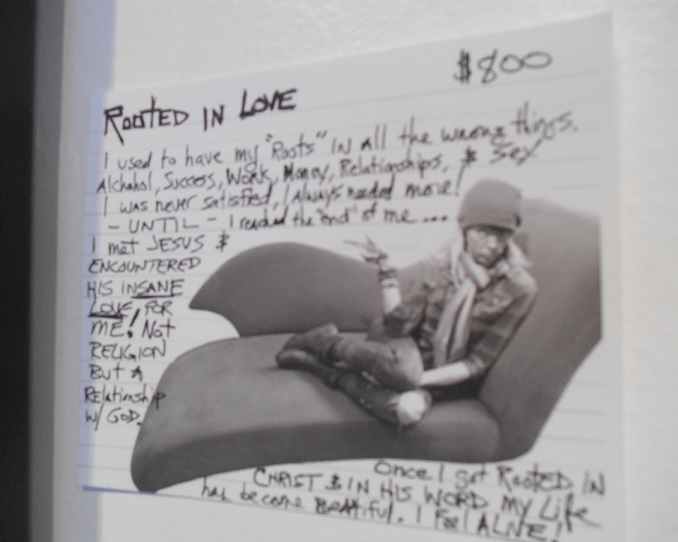 $800
ROOTED IN LOVE
I used to have my "Roots" IN all the wrong things.
Alchohol, Success, Work, Money, Relationships, $ Sex
I was never satisfied, I always needed more!
- UNTIL - I reached the "end" of me ...
I met JESUS $
ENCOUNTERED
HIS INSANE
LOVE FOR
ME! Not
RELIGION
But A
Relationship
w/ GOD.
Once I got ROOTED IN
CHRIST $ IN HIS WORD MY Life
has become BEAUtiful. I Feel ALIVE!